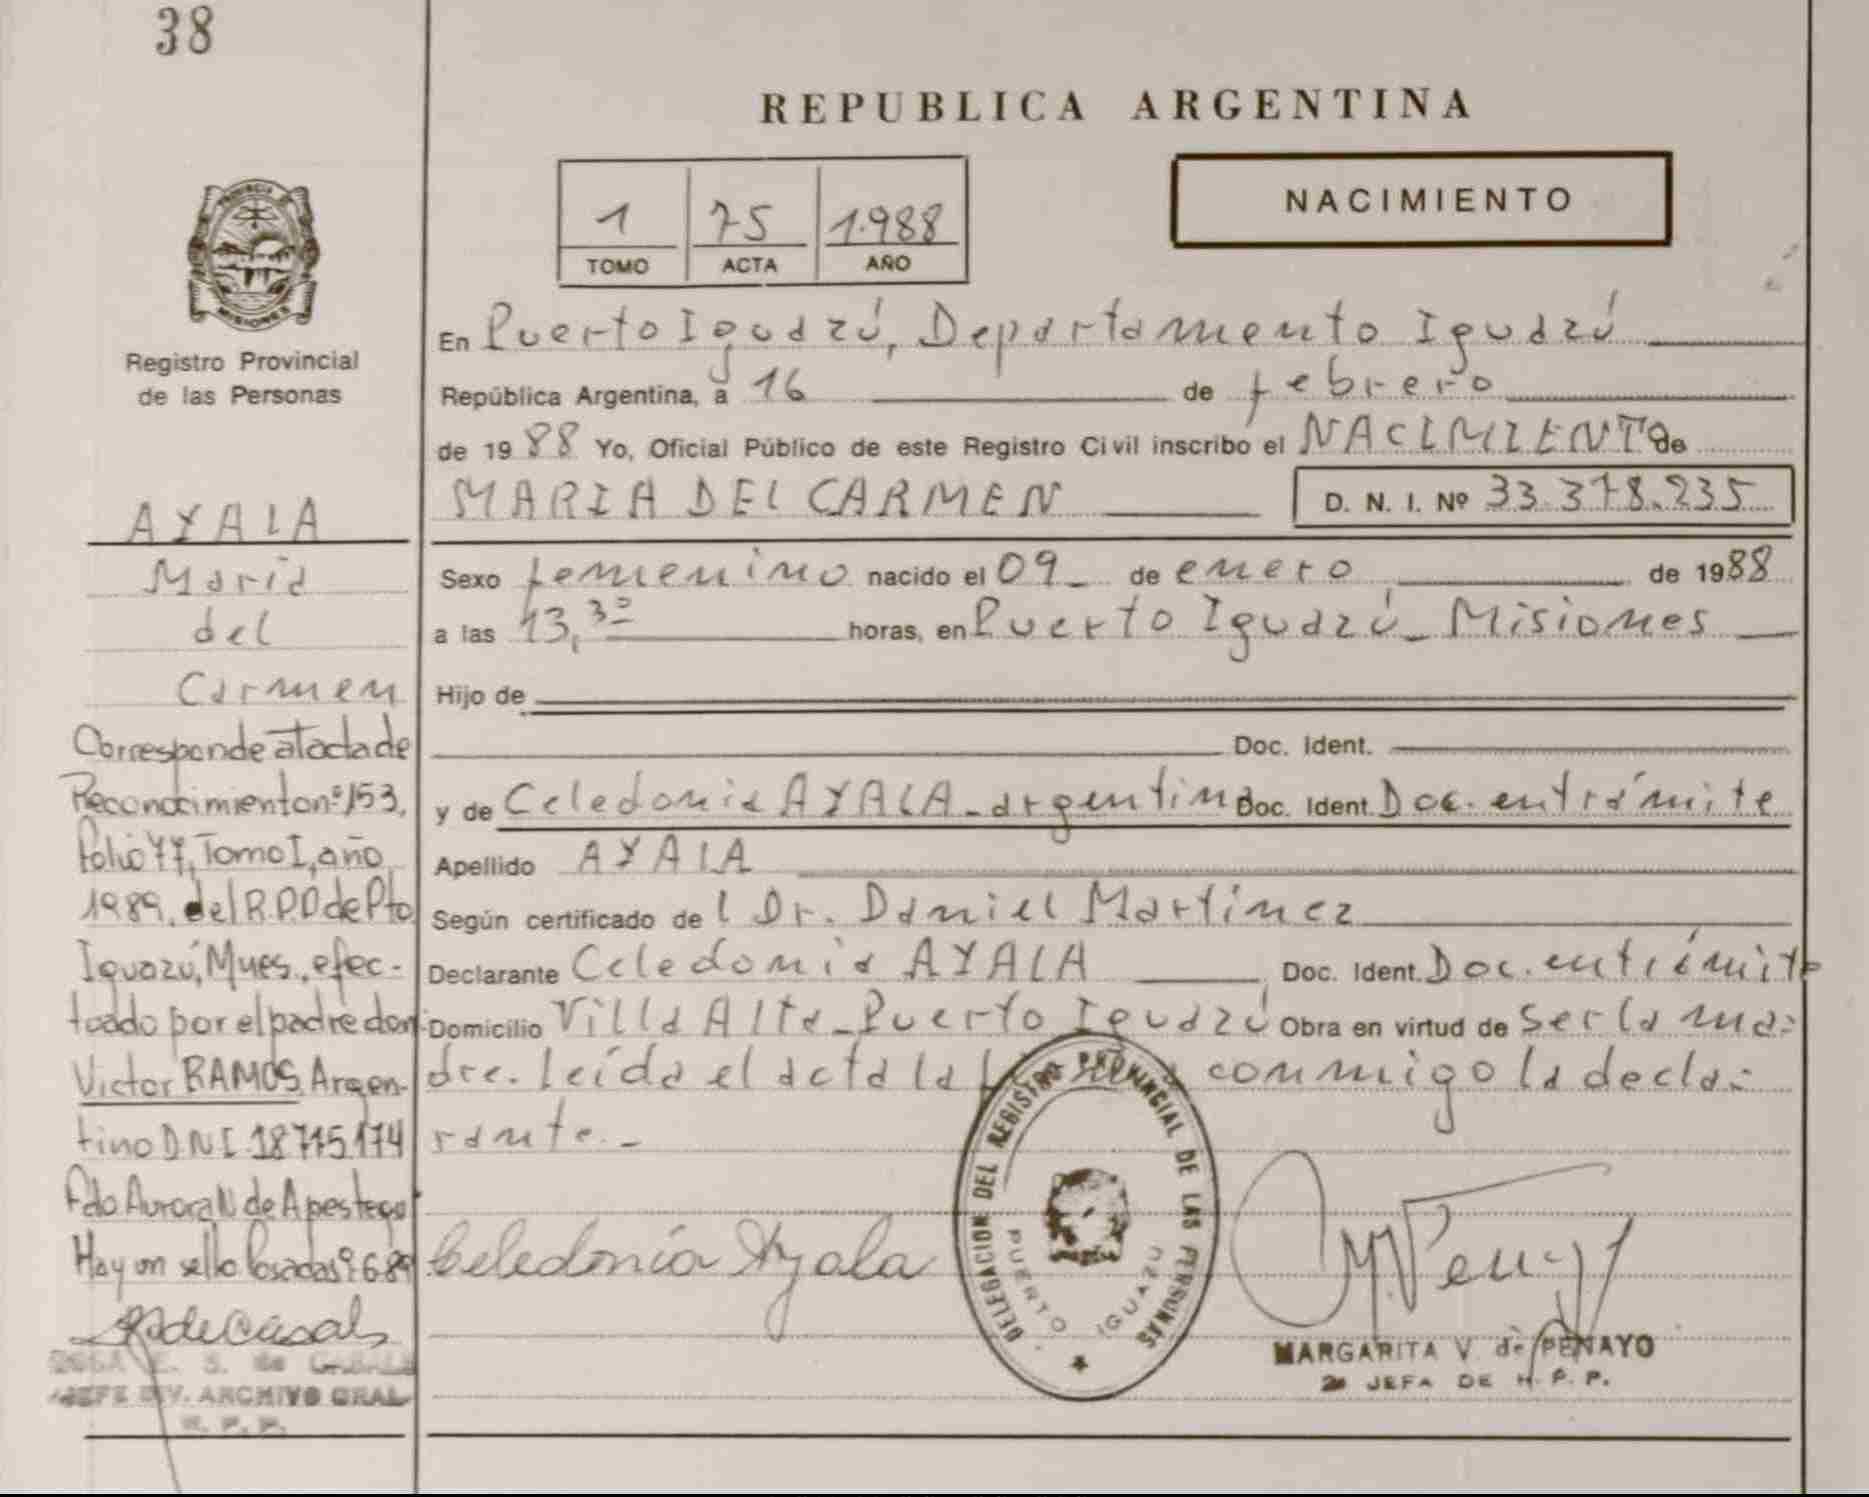 38
REPUBLICA ARGENTINA
NACIMIENTO
1 75 1.988
TOMO ACTA AÑO
PROVINCIA
MISIONES
Registro Provincial
de las Personas
En Puerto Iguazú, Departamento Iguazú
República Argentina, a 16 de febrero
de 1988 Yo, Oficial Público de este Registro Civil inscribo el NACIMIENTO de
MARIA DEL CARMEN D. N. I. Nº 33.378.235
Sexo femenino nacido el 09 de enero de 1988
a las 13,30 horas, en Puerto Iguazú - Misiones
Hijo de
Doc. Ident.
y de Celedonia AYALA - argentina Doc. Ident. Doc. en trámite
Apellido AYALA
Según certificado de l Dr. Daniel Martínez
Declarante Celedonia AYALA Doc. Ident. Doc. en trámite
Domicilio Villa Alta - Puerto Iguazú Obra en virtud de ser la ma-
dre. Leída el acta la conmigo la decla-
rante. -
Celedonia Ayala
DELEGACION DEL REGISTRO PROVINCIAL DE LAS PERSONAS
PUERTO IGUAZU
MARGARITA V. de PENAYO
2a JEFA DE R. P. P.
AYALA
Maria
del
Carmen
Corresponde atactade
Reconocimiento nº 153,
Folio 77, Tomo I, año
1989, del R.P.P. de Pto
Iguazú, Mnes., efec-
tuado por el padre don
Victor RAMOS, Argen-
tino D.N.I. 18715174
Fdo Aurora N de Apestegu
Hay un sello Posadas 9.6.89
R de Casals
ROSA E. S. de CASALS
JEFE DIV. ARCHIVO GRAL
R. P. P.